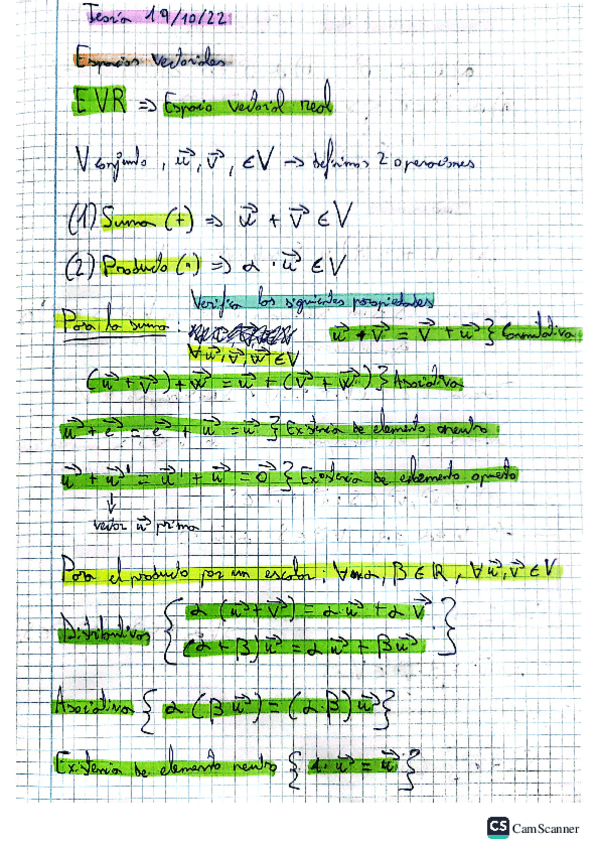 Teoría 19/10/22
Espacios vectoriales
EVR ⇒ Espacio vectorial real
V conjunto, u⃗, v⃗, ∈ V → definimos 2 operaciones
(1) Suma (+) ⇒ u⃗ + v⃗ ∈ V
(2) Producto (·) ⇒ α · u⃗ ∈ V
Verifica las siguientes propiedades
Para la suma: u⃗ + v⃗ = v⃗ + u⃗ } Conmutativa
∀ u⃗, v⃗, w⃗ ∈ V
(u⃗ + v⃗) + w⃗ = u⃗ + (v⃗ + w⃗) } Asociativa
u⃗ + e⃗ = e⃗ + u⃗ = u⃗ } Existencia de elemento neutro
u⃗ + u⃗' = u⃗' + u⃗ = 0⃗ } Existencia de elemento opuesto
↓
vector u⃗ prima
Para el producto por un escalar, ∀ α, β ∈ R, ∀ u⃗, v⃗ ∈ V
Distributivas { α (u⃗ + v⃗) = α u⃗ + α v⃗
(α + β) u⃗ = α u⃗ + β u⃗ }
Asociativa { α (β u⃗) = (α · β) u⃗ }
Existencia de elemento neutro { 1 · u⃗ = u⃗ }
CS CamScanner